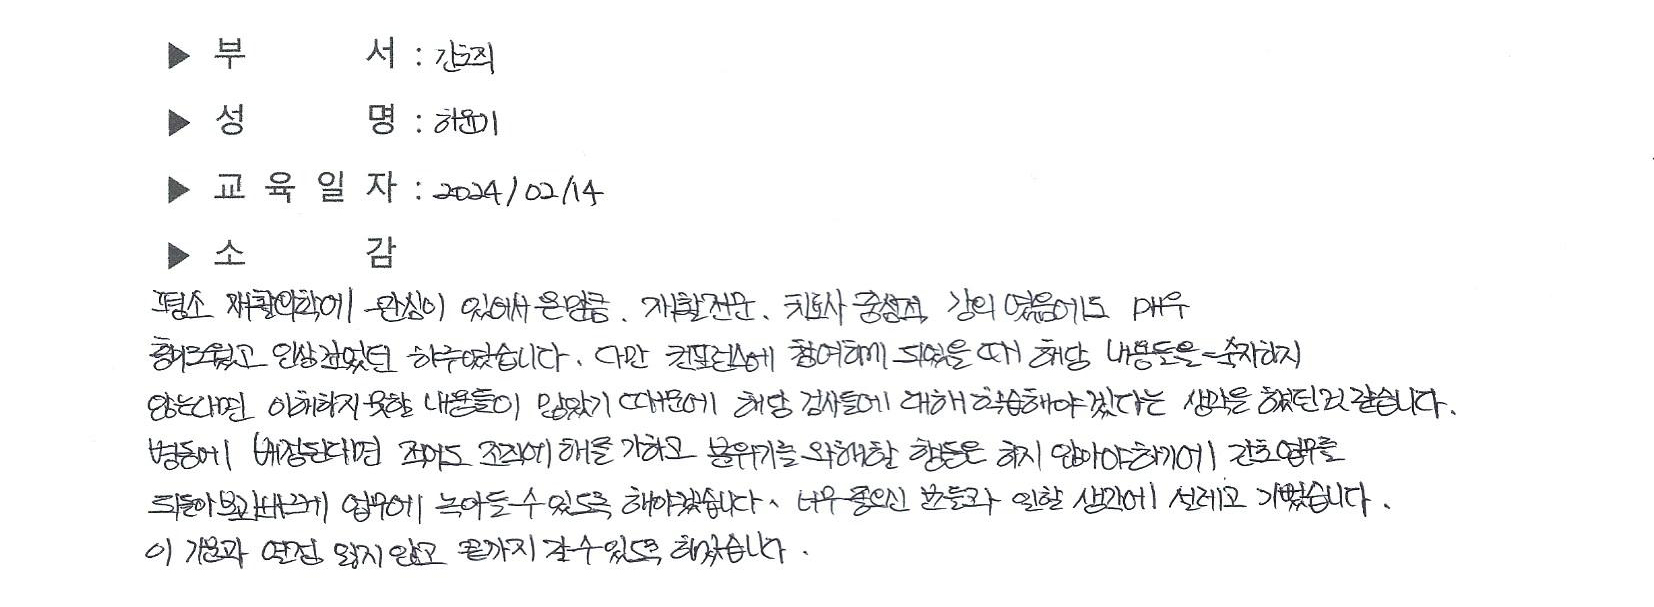 ▶ 부 서 : 간호직
▶ 성 명 : 하윤기
▶ 교 육 일 자 : 2024/02/14
▶ 소 감
평소 재활의학에 관심이 있어서 온만큼, 재활전문, 치료사 중심적 강의 였음에도 매우
흥미로웠고 인상깊었던 하루였습니다. 다만 컨퍼런스에 참여하게 되었을 때 해당 내용들을 숙지하지
않는다면 이해하지 못할 내용들이 많았기 때문에 해당 검사들에 대해 학습해야겠다는 생각을 했던것 같습니다.
병동에 배정된다면 적어도 조직에 해를 가하고 분위기를 와해할 행동은 하지 않아야하기에 간호업무를
되돌아보고 빠르게 업무에 녹아들 수 있도록 해야겠습니다. 너무 좋으신 분들과 일할 생각에 설레고 기뻤습니다.
이 기운과 열정 잃지 않고 끝까지 갈 수 있도록 하겠습니다.